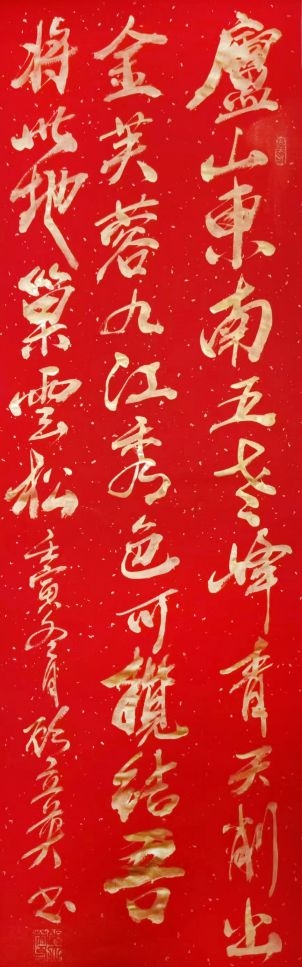 廬山東南五老峰青天削出
金芙蓉九江秀色可攬結吾
將此地巢雲松
壬寅冬月 立英书